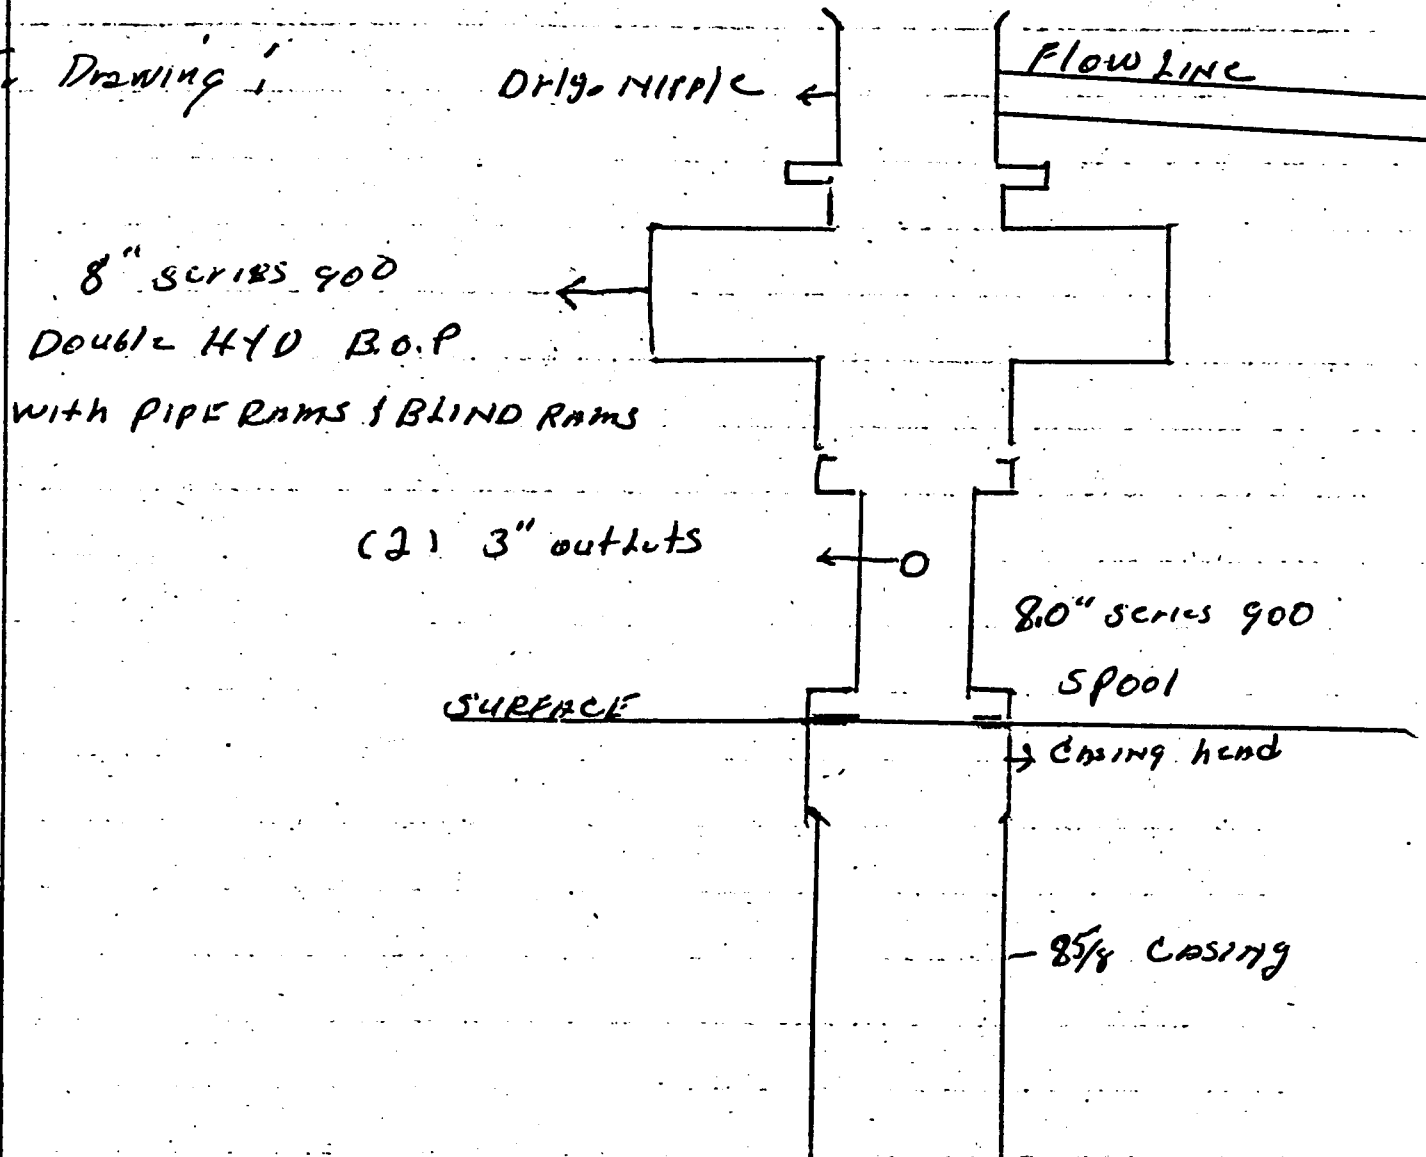 Drawing:
Drlg. Nipple
Flow Line
8" series 900
Double HYD B.O.P
with PIPE RAMS & BLIND RAMS
(2) 3" outlets
8.0" series 900
Spool
SURFACE
Casing head
8 5/8 Casing